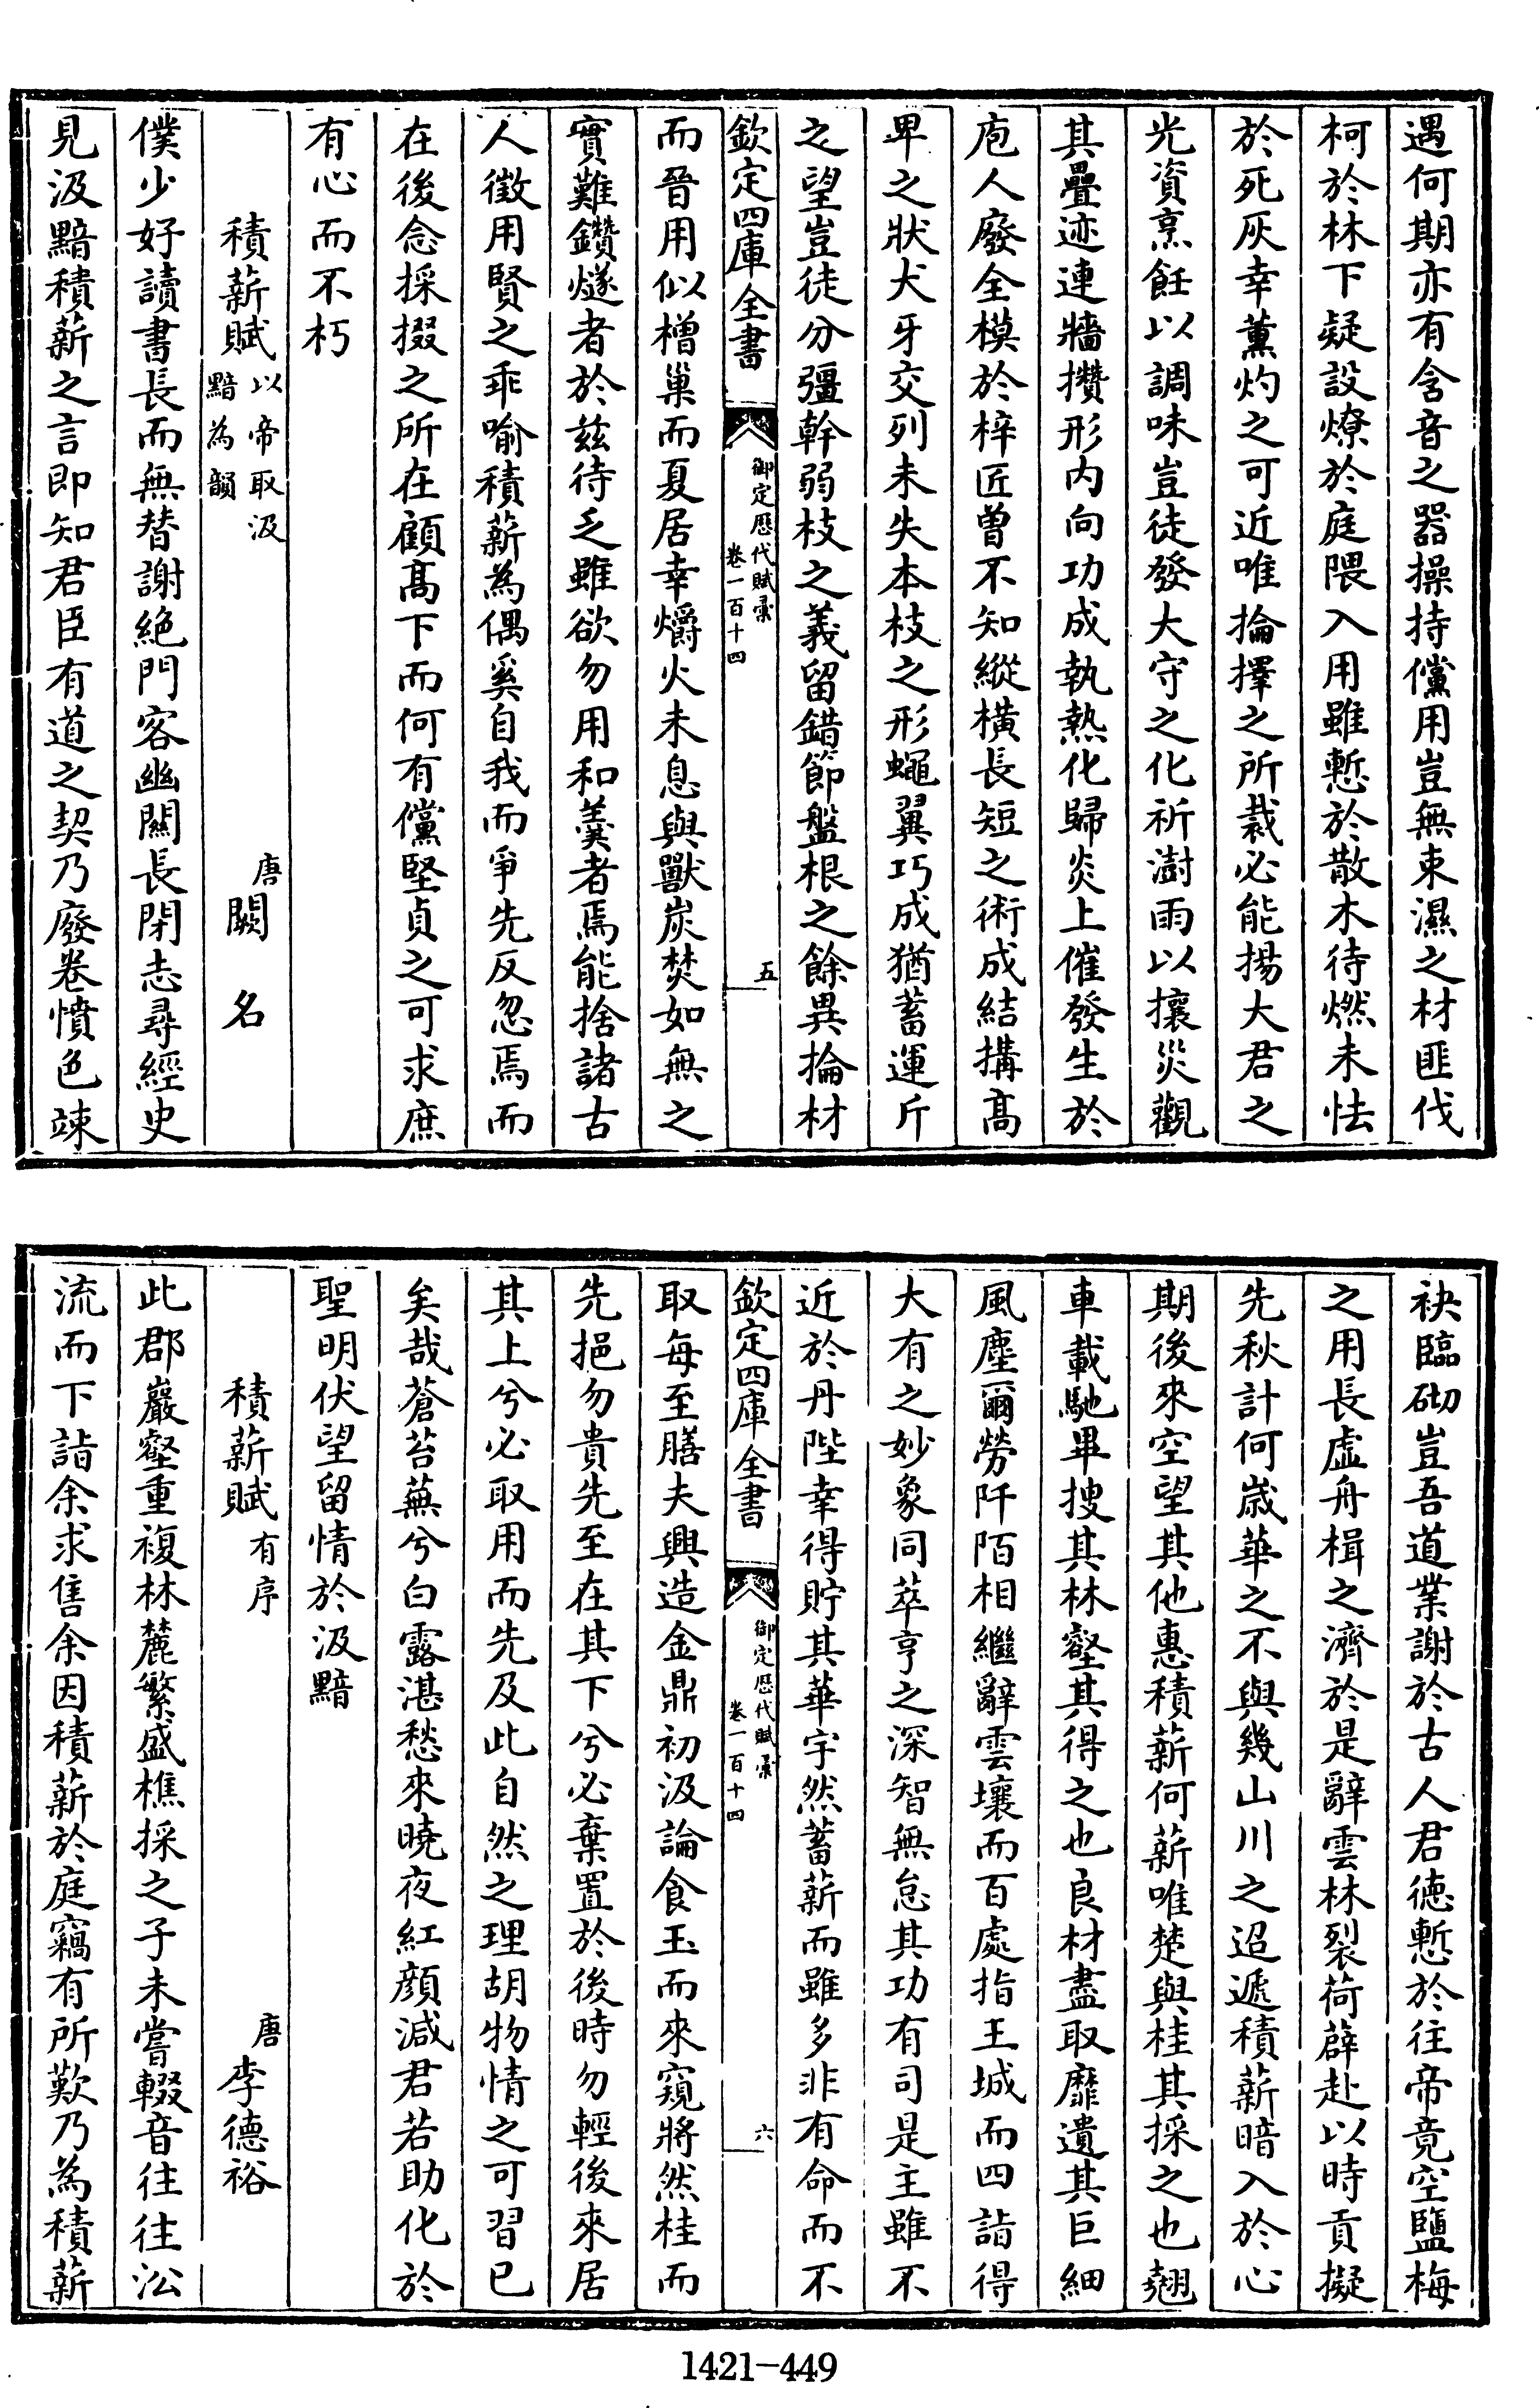 遇何期亦有含音之器操持儻用豈無束濕之材匪伐
柯於林下疑設燎於庭隈入用雖慙於散木待燃未怯
於死灰幸薰灼之可近唯掄擇之所裁必能揚大君之
光資烹飪以調味豈徒發大守之化祈澍雨以攘災觀
其疊迹連牆攢形内向功成執熱化歸炎上催發生於
庖人廢全模於梓匠曽不知縱橫長短之術成結搆髙
卑之狀犬牙交列未失本枝之形蠅翼巧成猶蓄運斤
之望豈徒分彊幹弱枝之義留錯節盤根之餘異掄材
欽定四庫全書
御定厯代賦彚
卷一百十四
五
而晉用似橧巢而夏居幸爝火未息與獸炭焚如無之
實難鑽燧者於兹待乏雖欲勿用和羮者焉能捨諸古
人徵用賢之乖喻積薪為偶奚自我而爭先反忽焉而
在後念採掇之所在顧髙下而何有儻堅貞之可求庶
有心而不朽
積薪賦
以帝取汲
黯為韻
唐
闕名
僕少好讀書長而無替謝絶門客幽關長閉志尋經史
見汲黯積薪之言即知君臣有道之契乃廢卷憤色竦
袂臨砌豈吾道業謝於古人君徳慙於往帝竟空鹽梅
之用長虚舟楫之濟於是辭雲林裂荷薜赴以時貢擬
先秋計何嵗華之不與幾山川之迢遞積薪暗入於心
期後來空望其他惠積薪何薪唯楚與桂其採之也翹
車載馳畢搜其林壑其得之也良材盡取靡遺其巨細
風塵爾勞阡陌相繼辭雲壤而百處指王城而四詣得
大有之妙象同萃亨之深智無怠其功有司是主雖不
近於丹陛幸得貯其華宇然蓄薪而雖多非有命而不
欽定四庫全書
御定厯代賦彚
卷一百十四
六
取每至膳夫興造金鼎初汲論食玉而來窺將然桂而
先挹勿貴先至在其下兮必棄置於後時勿輕後來居
其上兮必取用而先及此自然之理胡物情之可習已
矣哉蒼苔蕪兮白露湛愁來曉夜紅顔減君若助化於
聖明伏望留情於汲黯
積薪賦
有序
唐
李德裕
此郡巖壑重複林麓繁盛樵採之子未嘗輟音往往㳂
流而下詣余求售余因積薪於庭竊有所歎乃為積薪
1421-449